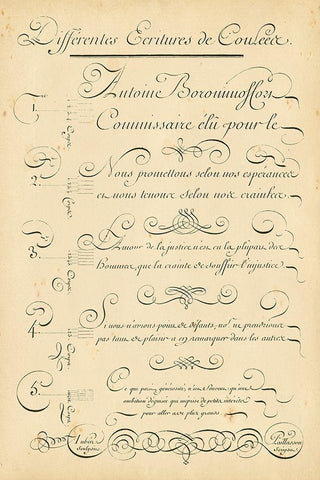 Différentes Ecritures de Coulées.
1. Antoine Boromeo
Commissaire élû pour le
2. Nous promettons selon nos espérances
et nous tenons selon nos craintes.
3. L'Amour de la justice n'est en la plûpart des
Hommes, que la crainte de souffrir l'injustice.
4. Si nous n'avions point de défauts, nous ne prendrions
pas tant de plaisir à en remarquer dans les autres.
5. Ce qui paroît générosité n'est souvent qu'une
ambition déguisée qui méprise de petits intérêts
pour aller à de plus grands.
Aubin Paillasson
Sculpsit. Scripsit.